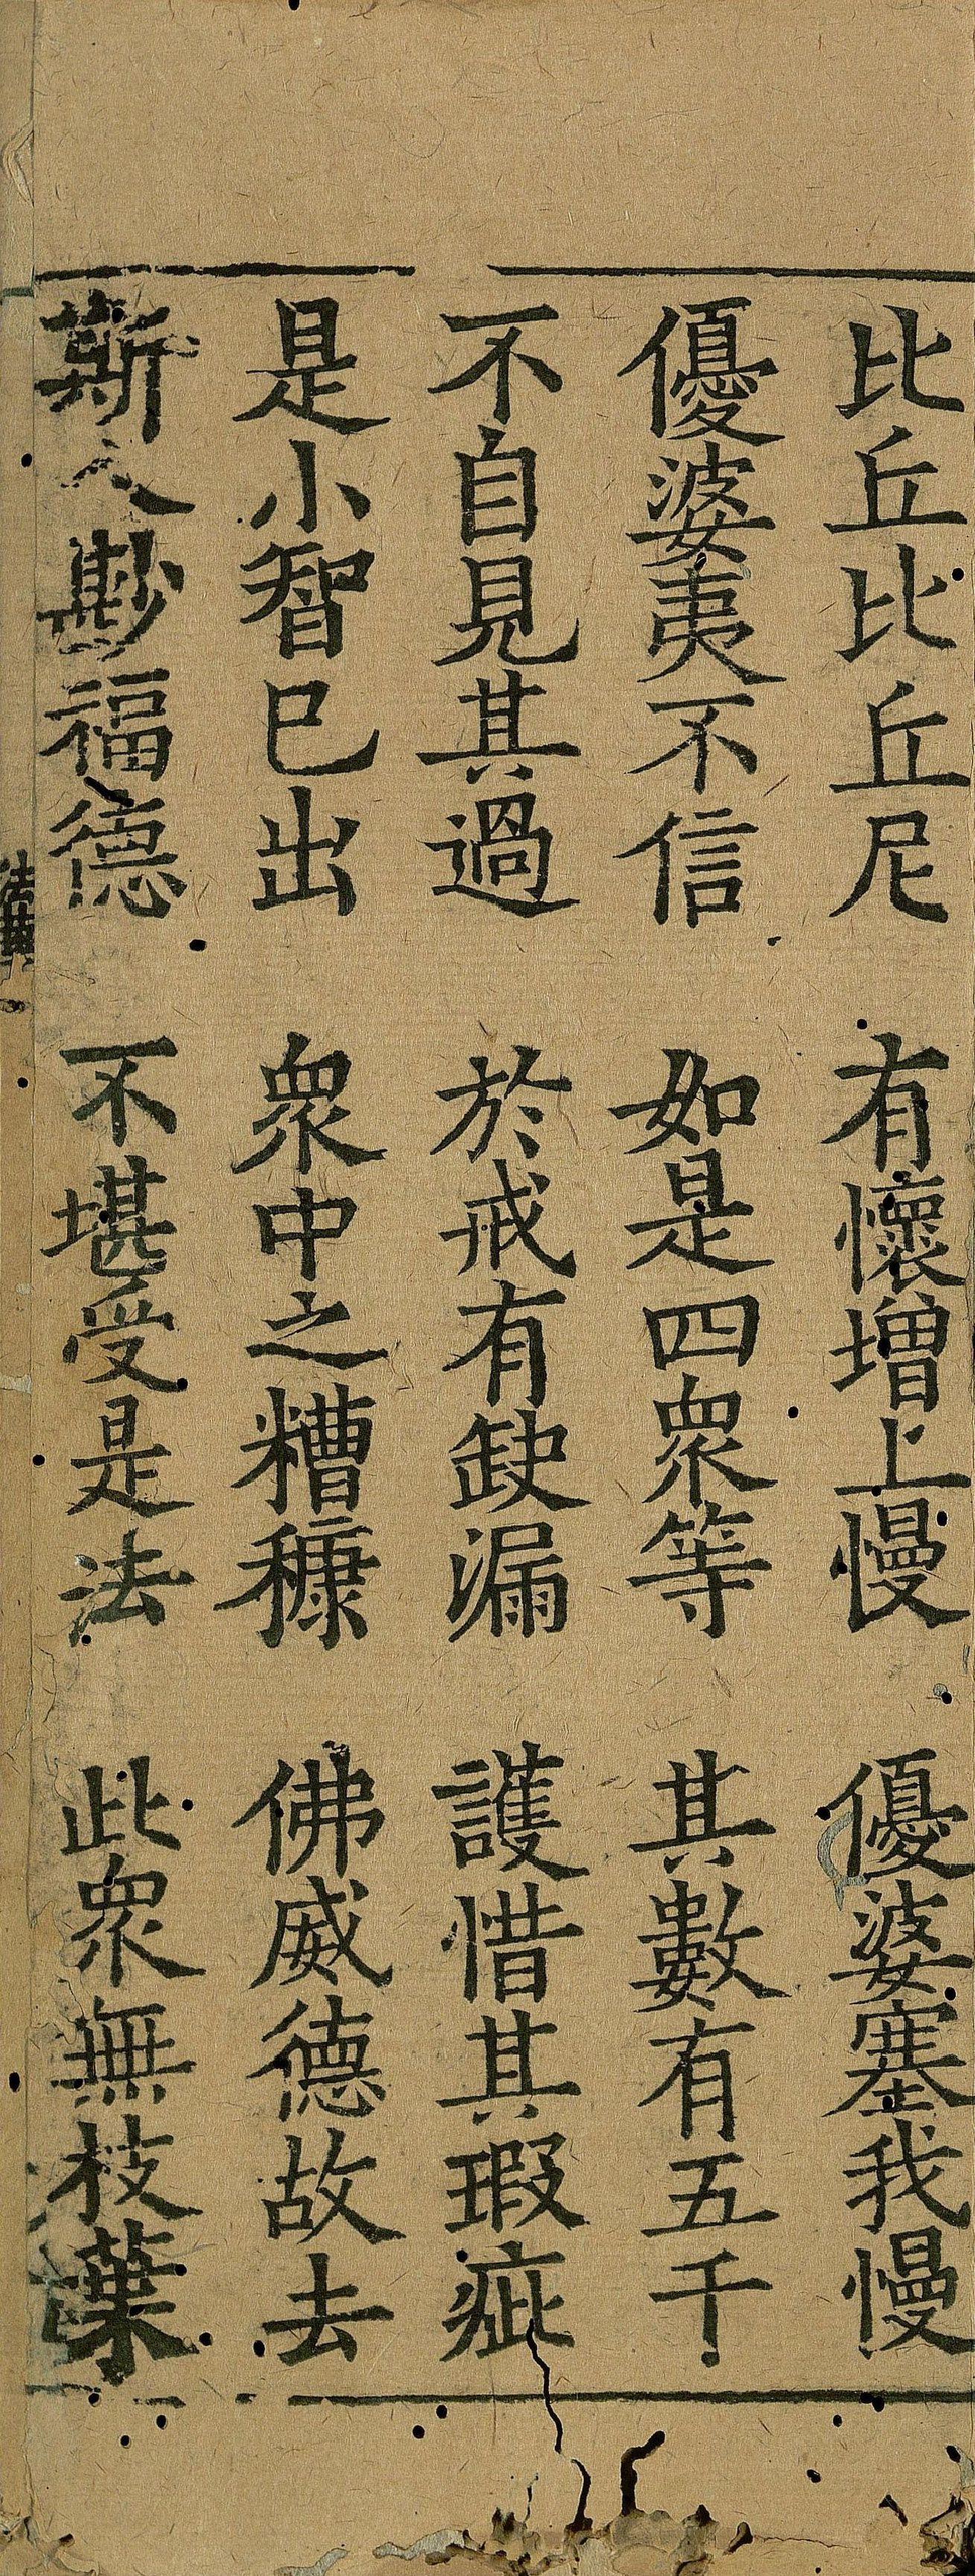 比丘比丘尼　有懷增上慢　優婆塞我慢
優婆夷不信　如是四衆等　其數有五千
不自見其過　於戒有缺漏　護惜其瑕疵
是小智已出　衆中之糟糠　佛威德故去
斯人尠福德　不堪受是法　此衆無枝葉